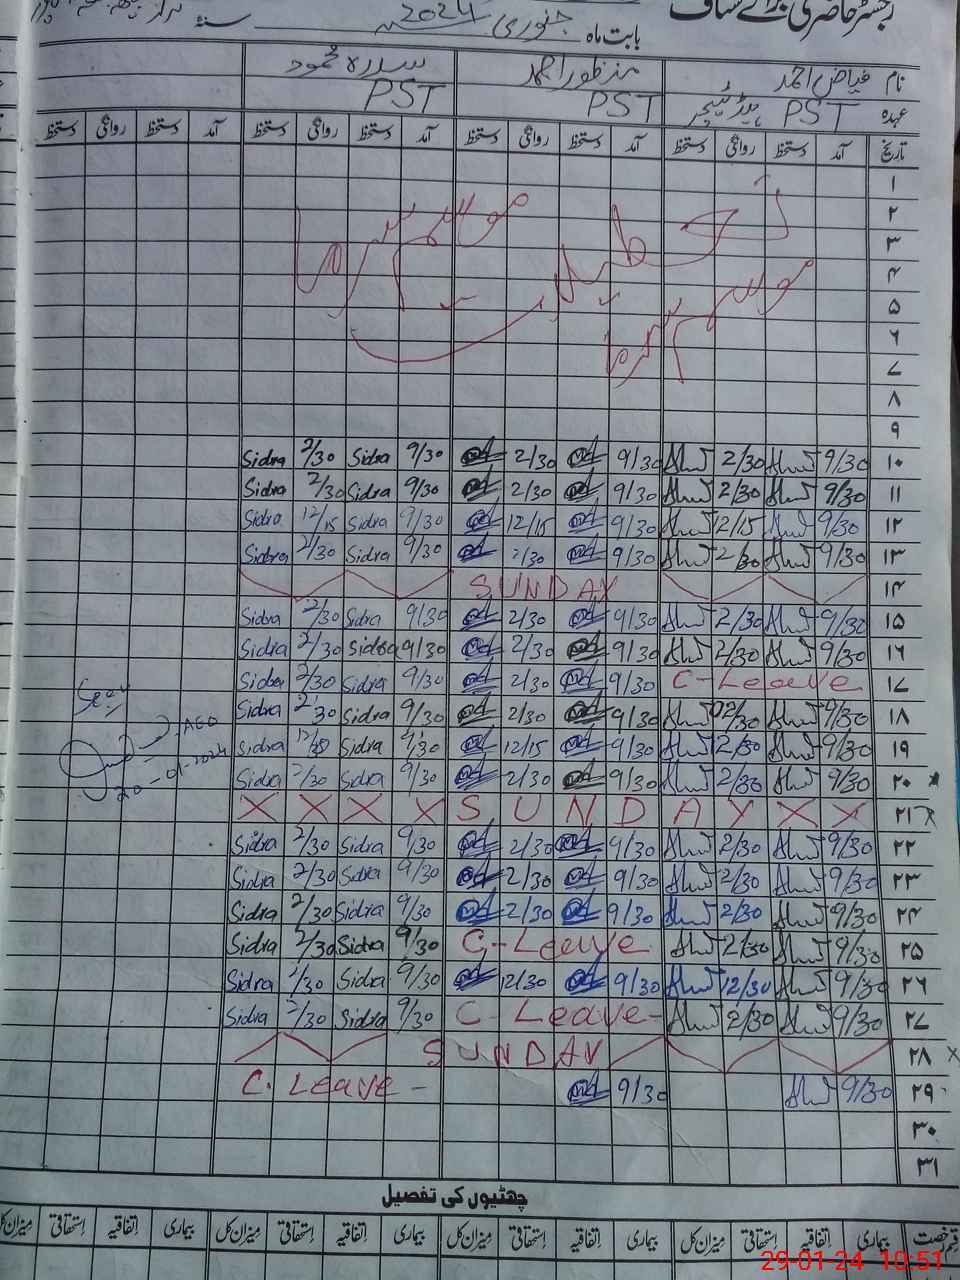 رجسٹر حاضری برائے سٹاف
بابت ماہ جنوری 2024 سنہ
نام فیاض احمد منظور احمد سدرہ محمود
عہدہ PST ہیڈ ٹیچر PST PST
تاریخ آمد دستخط روانگی دستخط آمد دستخط روانگی دستخط آمد دستخط روانگی دستخط آمد دستخط روانگی دستخط
۱
۲
۳
۴
۵
۶
۷
۸
۹
تعطیلات موسم سرما
موسم سرما
۱۰ 9/30 2/30 9/30 2/30 9/30 Sidra 2/30 Sidra
۱۱ 9/30 2/30 9/30 2/30 9/30 Sidra 2/30 Sidra
۱۲ 9/30 12/15 9/30 12/15 9/30 Sidra 12/15 Sidra
۱۳ 9/30 2/30 9/30 2/30 9/30 Sidra 2/30 Sidra
۱۴ SUNDAY
۱۵ 9/30 2/30 9/30 2/30 9/30 Sidra 2/30 Sidra
۱۶ 9/30 2/30 9/30 2/30 9/30 Sidra 2/30 Sidra
۱۷ C-Leave 9/30 2/30 9/30 Sidra 2/30 Sidra
۱۸ 9/30 02/30 9/30 2/30 9/30 Sidra 2/30 Sidra
۱۹ 9/30 2/30 9/30 12/15 9/30 Sidra Sidra
۲۰ 9/30 2/30 9/30 2/30 9/30 Sidra 2/30 Sidra
AEO
20-01-2024
۲۱ X X X X SUNDAY X X
۲۲ 9/30 2/30 9/30 2/30 9/30 Sidra 2/30 Sidra
۲۳ 9/30 2/30 9/30 2/30 9/30 Sidra 2/30 Sidra
۲۴ 9/30 2/30 9/30 2/30 9/30 Sidra 2/30 Sidra
۲۵ 9/30 2/30 C-Leave 9/30 Sidra 2/30 Sidra
۲۶ 9/30 12/30 9/30 12/30 9/30 Sidra Sidra
۲۷ 9/30 2/30 C-Leave- 9/30 Sidra 2/30 Sidra
۲۸ SUNDAY
۲۹ 9/30 9/30 C. Leave -
۳۰
۳۱
چھٹیوں کی تفصیل
قسم رخصت بیماری اتفاقیہ استحقاقی میزان کل بیماری اتفاقیہ استحقاقی میزان کل بیماری اتفاقیہ استحقاقی میزان کل بیماری اتفاقیہ استحقاقی میزان کل
29-01-24 10:51